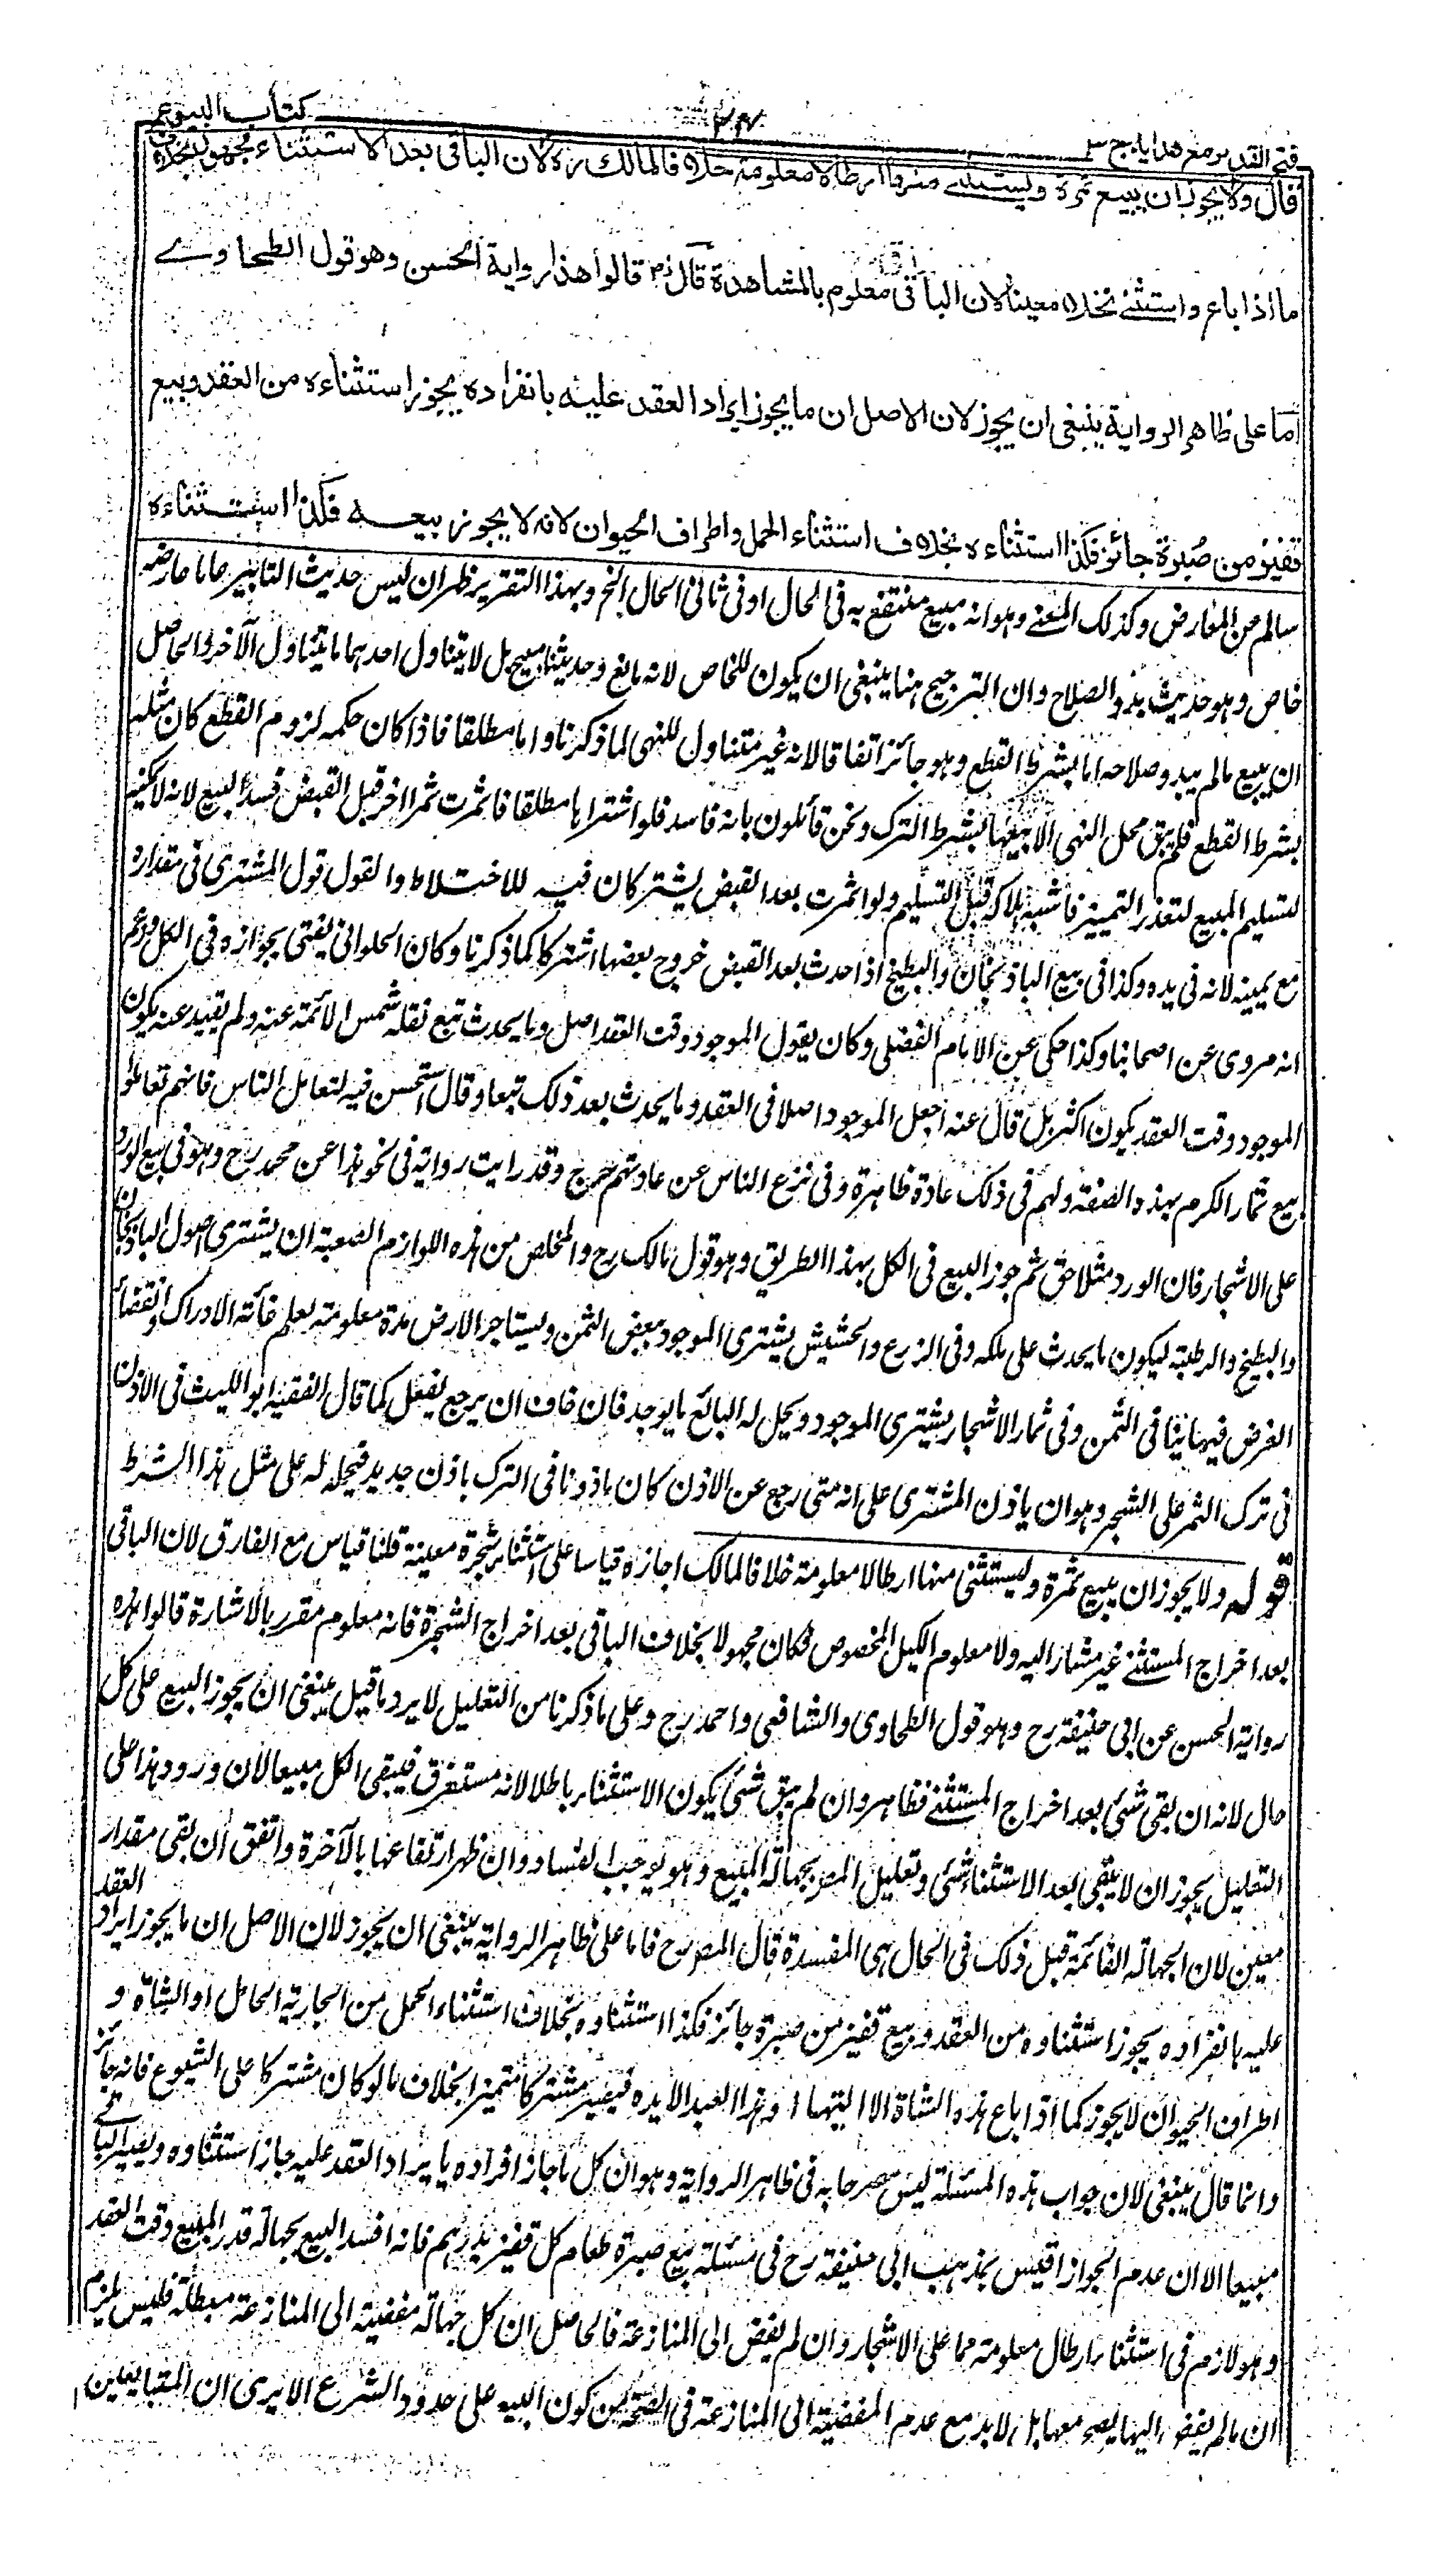 فتح القدير مع هدايا ج ٣
كتاب البيوع
قال ولا يجوز ان يبيع ثمرة ويستثنى منها ارطالا معلومة خلافا لمالك رہ لان الباقى بعد الاستثناء مجهول بخلاف
ما اذا باع واستثنى نخلا معينا لان الباقى معلوم بالمشاهدة قال رہ قالوا هذا رواية الحسن وهو قول الطحاوے
اما على ظاهر الرواية ينبغى ان يجوز لان الاصل ان ما يجوز ايراد العقد عليه بانفراده يجوز استثناءه من العقد وبيع
قفيز من صبرة جائز فكذا استثناءه بخلاف استثناء الحمل واطراف الحيوان لانه لا يجوز بيعه فكذا استثناءه
سالم من المعارض وكذلك المعنے وهو انه مبيع منتفع به فى الحال او فى ثانى الحال الخ وبهذا التقرير ظهر ان ليس حديث التابير عاما عارضه
خاص وهو حديث بدو الصلاح وان الترجيح هنا ينبغى ان يكون للخاص لانه مانع وحديثنا مبيح بل لا يتناول احدهما ما يتناول الآخر والحاصل
ان بيع مالم يبد وصلاحه اما بشرط القطع وهو جائز اتفاقا لانه غير متناول للنهى لما ذكرنا واما مطلقا فاذا كان حكمه لزوم القطع كان مثله
بشرط القطع فلم يبق محل النهى الا بيعها بشرط الترك ونحن قائلون بانه فاسد فلو اشتراها مطلقا فاثمرت ثمرا اخر قبل القبض فسد البيع لانه لا يمكنه
تسليم المبيع لتعذر التمييز فاشبه هلاكه قبل التسليم ولو اثمرت بعد القبض يشتركان فيه للاختلاط والقول قول المشترى فى مقداره
مع يمينه لانه فى يده وكذا فى بيع الباذنجان والبطيخ اذا حدث بعد القبض خروج بعضها اشتركا كما ذكرنا وكان الحلوانى يفتى بجوازه فى الكل وزعم
انه مروى عن اصحابنا وكذا حكى عن الامام الفضلى وكان يقول الموجود وقت العقد اصل وما يحدث تبع نقله شمس الائمة عنه ولم يقيده عنه بكون
الموجود وقت العقد يكون اكثر بل قال عنه اجعل الموجود اصلا فى العقد وما يحدث بعد ذلك تبعا وقال استحسن فيه لتعامل الناس فانهم تعاملوا
بيع ثمار الكرم بهذه الصفة ولهم فى ذلك عادة ظاهرة وفى نزع الناس عن عادتهم حرج وقد رايت رواية فى نحو هذا عن محمد رح وهو فى بيع الورد
على الاشجار فان الورد متلاحق ثم جوز البيع فى الكل بهذا الطريق وهو قول مالك رح والمخلص من هذه اللوازم الصعبة ان يشترى اصول الباذنجان
والبطيخ والرطبة ليكون ما يحدث على ملكه وفى الزرع والحشيش يشترى الموجود ببعض الثمن ويستاجر الارض مدة معلومة يعلم غاية الادراك وانقضاء
الغرض فيها بباقى الثمن وفى ثمار الاشجار يشترى الموجود ويحل له البائع ما يوجد فان خاف ان يرجع يفعل كما قال الفقيه ابو الليث فى الاذن
فى ترك الثمر على الشجر وهو ان ياذن المشترى على انه متى رجع عن الاذن كان ماذونا فى الترك باذن جديد فيحل له على مثل هذا الشرط
قوله ولا يجوز ان يبيع ثمرة ويستثنى منها ارطالا معلومة خلافا لمالك اجازه قياسا على استثناء شجرة معينة قلنا قياس مع الفارق لان الباقى
بعد اخراج المستثنے غير مشار اليه ولا معلوم الكيل المخصوص فكان مجهولا بخلاف الباقى بعد اخراج الشجرة فانه معلوم مقرر بالاشارة قالوا هذه
رواية الحسن عن ابى حنيفة رح وهو قول الطحاوى والشافعى واحمد رح وعلى ما ذكرنا من التعليل لا يرد ما قيل ينبغى ان يجوز البيع على كل
حال لانه ان بقى شئ بعد اخراج المستثنے فظاهر وان لم يبق شئ يكون الاستثناء باطلا لانه مستغرق فيبقى الكل مبيعا لان ورود هذا على
التعليل يجوز ان لا يبقى بعد الاستثناء شئ وتعليل المص بجهالة المبيع وهو يوجب الفساد وان ظهر ارتفاعها بالآخرة واتفق ان بقى مقدار
معين لان الجهالة القائمة قبل ذلك فى الحال هى المفسدة قال المص رح فاما على ظاهر الرواية ينبغى ان يجوز لان الاصل ان ما يجوز ايراد العقد
عليه بانفراده يجوز استثناوه من العقد وبيع قفيز من صبرة جائز فكذا استثناوه بخلاف استثناء الحمل من الجارية الحامل او الشاة و
اطراف الحيوان لا يجوز كما اذا باع هذه الشاة الا اليتها او هذا العبد الا يده فيصير مشتركا متميزا بخلاف ما لو كان مشتركا على الشيوع فانه جائز
وانما قال ينبغى لان جواب هذه المسئلة ليس مصرحا به فى ظاهر الرواية وهو ان كل ما جاز افراده بايراد العقد عليه جاز استثناوه ويصير الباقے
مبيعا الا ان عدم الجواز اقيس بمذهب ابى حنيفة رح فى مسئلة بيع صبرة طعام كل قفيز بدرهم فانه افسد البيع بجهالة قدر المبيع وقت العقد
وهو لازم فى استثناء ارطال معلومة مما على الاشجار وان لم يفض الى المنازعة فالحاصل ان كل جهالة مفضية الى المنازعة مبطلة فليس يلزم
ان مالم يفض اليها يصح معها بل لا بد مع عدم المفضية الى المنازعة فى الصحة من كون البيع على حدود الشرع الا يرى ان المتبايعين